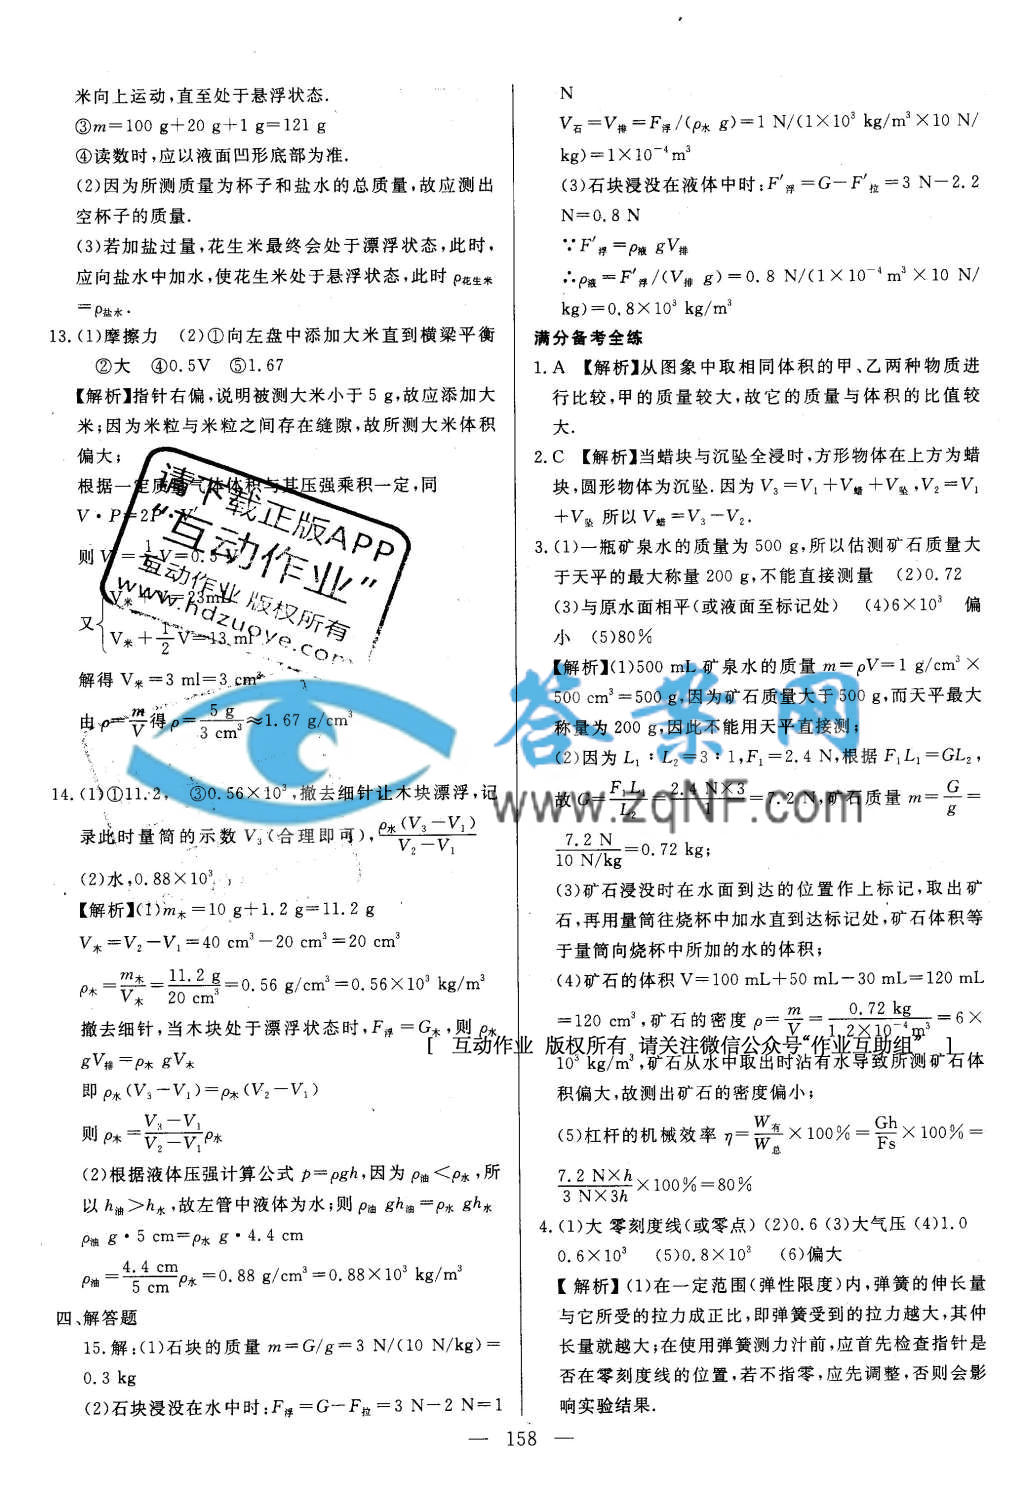 米向上运动,直至处于悬浮状态.
③m=100 g+20 g+1 g=121 g
④读数时,应以液面凹形底部为准.
(2)因为所测质量为杯子和盐水的总质量,故应测出
空杯子的质量.
(3)若加盐过量,花生米最终会处于漂浮状态,此时,
应向盐水中加水,使花生米处于悬浮状态,此时 ρ花生米
=ρ盐水.
13.(1)摩擦力 (2)①向左盘中添加大米直到横梁平衡
②大 ④0.5V ⑤1.67
【解析】指针右偏,说明被测大米小于 5 g,故应添加大
米;因为米粒与米粒之间存在缝隙,故所测大米体积
偏大;
根据一定质量气体体积与其压强乘积一定,同
V·P=2P·V′
则 V′=1/2V=0.5 V
又{V米+V=23ml
V米+1/2V=13 ml
解得 V米=3 ml=3 cm³
由 ρ=m/V得 ρ=5 g/3 cm³≈1.67 g/cm³
14.(1)①11.2, ③0.56×10³,撤去细针让木块漂浮,记
录此时量筒的示数 V₃(合理即可),ρ水(V₃-V₁)/V₂-V₁
(2)水,0.88×10³
【解析】(1)m木=10 g+1.2 g=11.2 g
V木=V₂-V₁=40 cm³-20 cm³=20 cm³
ρ木=m木/V木=11.2 g/20 cm³=0.56 g/cm³=0.56×10³ kg/m³
撤去细针,当木块处于漂浮状态时,F浮=G木,则 ρ水
gV排=ρ木 gV木
即 ρ水(V₃-V₁)=ρ木(V₂-V₁)
则 ρ木=V₃-V₁/V₂-V₁ρ水
(2)根据液体压强计算公式 p=ρgh,因为 ρ油<ρ水,所
以 h油>h水,故左管中液体为水;则 ρ油 gh油=ρ水 gh水
ρ油 g·5 cm=ρ水 g·4.4 cm
ρ油=4.4 cm/5 cmρ水=0.88 g/cm³=0.88×10³ kg/m³
四、解答题
15.解:(1)石块的质量 m=G/g=3 N/(10 N/kg)=
0.3 kg
(2)石块浸没在水中时:F浮=G-F拉=3 N-2 N=1
N
V石=V排=F浮/(ρ水 g)=1 N/(1×10³ kg/m³×10 N/
kg)=1×10⁻⁴m³
(3)石块浸没在液体中时:F′浮=G-F′拉=3 N-2.2
N=0.8 N
∵F′浮=ρ液 gV排
∴ρ液=F′浮/(V排 g)=0.8 N/(1×10⁻⁴m³×10 N/
kg)=0.8×10³ kg/m³
满分备考全练
1.A 【解析】从图象中取相同体积的甲、乙两种物质进
行比较,甲的质量较大,故它的质量与体积的比值较
大.
2.C 【解析】当蜡块与沉坠全浸时,方形物体在上方为蜡
块,圆形物体为沉坠.因为 V₃=V₁+V蜡+V坠,V₂=V₁
+V坠 所以 V蜡=V₃-V₂.
3.(1)一瓶矿泉水的质量为 500 g,所以估测矿石质量大
于天平的最大称量 200 g,不能直接测量 (2)0.72
(3)与原水面相平(或液面至标记处) (4)6×10³ 偏
小 (5)80%
【解析】(1)500 mL 矿泉水的质量 m=ρV=1 g/cm³×
500 cm³=500 g,因为矿石质量大于 500 g,而天平最大
称量为 200 g,因此不能用天平直接测;
(2)因为 L₁∶L₂=3∶1,F₁=2.4 N,根据 F₁L₁=GL₂,
故 G=F₁L₁/L₂=2.4 N×3/1=7.2 N,矿石质量 m=G/g=
7.2 N/10 N/kg=0.72 kg;
(3)矿石浸没时在水面到达的位置作上标记,取出矿
石,再用量筒往烧杯中加水直到达标记处,矿石体积等
于量筒向烧杯中所加的水的体积;
(4)矿石的体积 V=100 mL+50 mL-30 mL=120 mL
=120 cm³,矿石的密度 ρ=m/V=0.72 kg/1.2×10⁻⁴m³=6×
10³ kg/m³,矿石从水中取出时沾有水导致所测矿石体
积偏大,故测出矿石的密度偏小;
(5)杠杆的机械效率 η=W有/W总×100%=Gh/Fs×100%=
7.2 N×h/3 N×3h×100%=80%
4.(1)大 零刻度线(或零点) (2)0.6 (3)大气压 (4)1.0
0.6×10³ (5)0.8×10³ (6)偏大
【解析】(1)在一定范围(弹性限度)内,弹簧的伸长量
与它所受的拉力成正比,即弹簧受到的拉力越大,其伸
长量就越大;在使用弹簧测力汁前,应首先检查指针是
否在零刻度线的位置,若不指零,应先调整,否则会影
响实验结果.
— 158 —
请下载正版APP
“互动作业”
互动作业 版权所有
www.hdzuoye.com
答案网
www.zqNF.com
[ 互动作业 版权所有 请关注微信公众号“作业互助组” ]